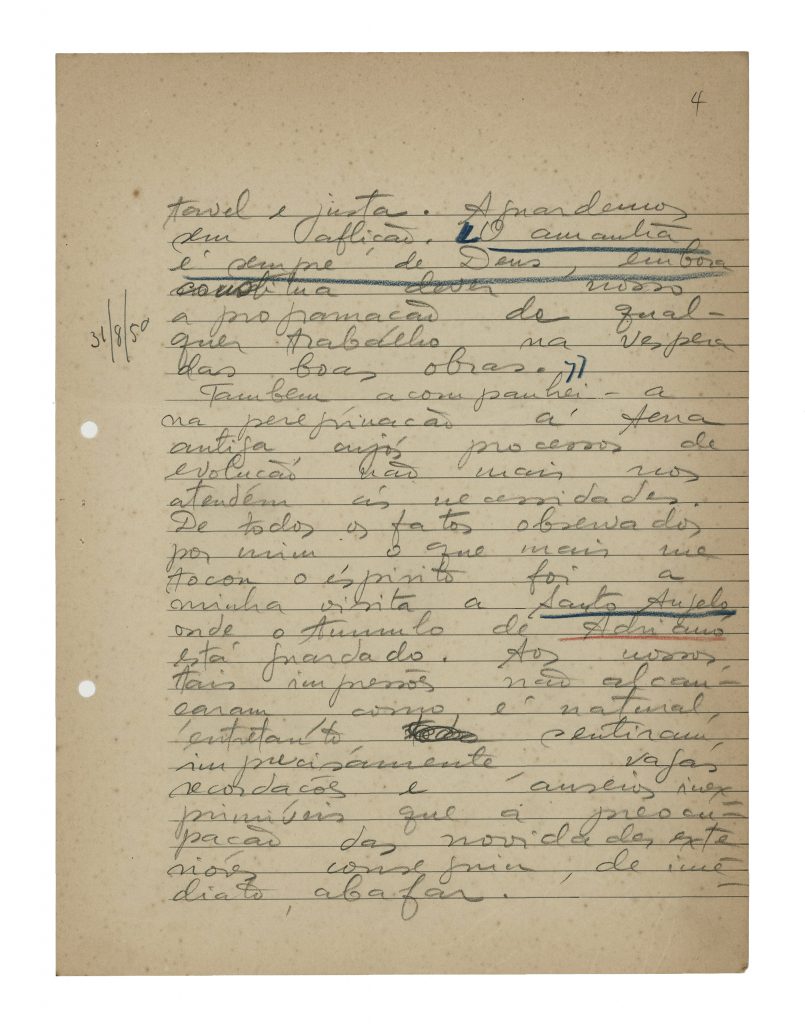 4
tavel e justa. Aguardemos
sem aflição. "O amanhã
é sempre de Deus, embora
constitua dever nosso
31/8/50
a programação de qual-
quer trabalho na vespera
das boas obras."
Tambem acompanhei-a
na peregrinação á terra
antiga, cujos processos de
evolução não mais nos
atendem ás necessidades.
De todos os fatos observados
por mim o que mais me
tocou o espirito foi a
minha visita a Santo Anjelo
onde o tumulo de Adriano
está guardado. Aos nossos
tais impressões não alcan-
çaram como é natural,
entretanto sentiram,
imprecisamente vagas
recordações e anseios inex
primiveis que a preocu-
pação das novidades exte
riores conseguiu, de ime-
diato, abafar.